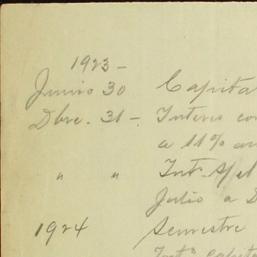 1923-
Junio 30 Capita
Dbre. 31 -. Interes co
a 11% an
" " Int. s/el
Julio a D
1924 Semestre